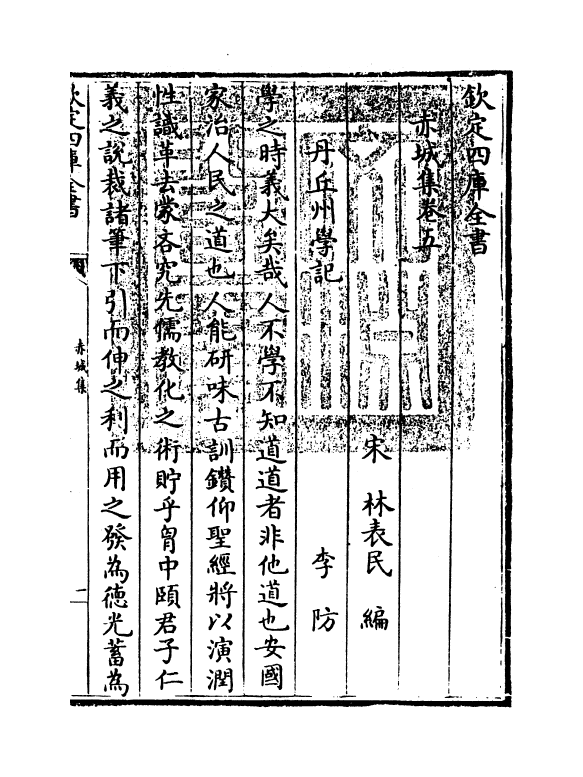 欽定四庫全書
赤城集卷五
宋 林表民 編
丹丘州學記 李防
學之時義大矣哉人不學不知道道者非他道也安國
家治人民之道也人能研味古訓鑽仰聖經將以演潤
性識革去蒙吝究先儒教化之術貯乎胷中頤君子仁
義之說裁諸筆下引而伸之利而用之發為德光蓄為
欽定四庫全書
赤城集